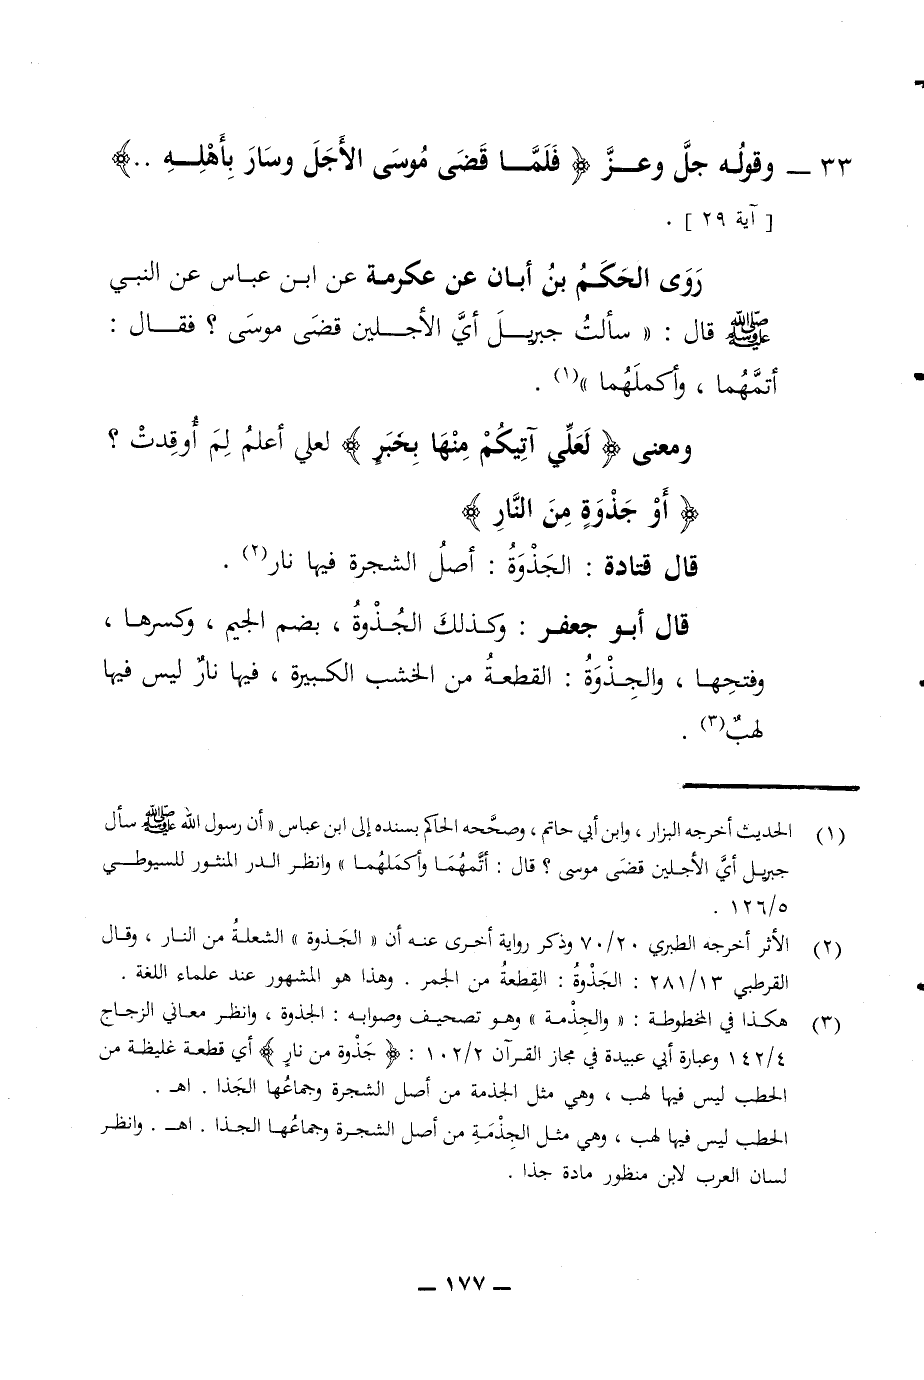 ٣٣ ــ وقولُه جلَّ وعزَّ ﴿ فَلَمَّا قَضَى مُوسَى الأَجَلَ وسَارَ بِأَهْلِهِ ..﴾
[ آية ٢٩ ] .
رَوَى الحَكَمُ بنُ أبان عن عكرمة عن ابن عباس عن النبي
ﷺ قال : « سألتُ جبريلَ أيَّ الأجلين قضَى موسَى ؟ فقال :
أتمَّهُما ، وأكملَهُما »(١) .
ومعنى ﴿ لَعَلِّي آتِيكُمْ مِنْهَا بِخَبَرٍ ﴾ لعلي أعلمُ لِمَ أُوقِدتْ ؟
﴿ أَوْ جَذْوَةٍ مِنَ النَّارِ ﴾
قال قتادة : الجَذْوَةُ : أصلُ الشجرة فيها نار(٢) .
قال أبو جعفر : وكذلكَ الجُذْوةُ ، بضم الجيم ، وكسرها ،
وفتحِها ، والجِذْوَةُ : القطعةُ من الخشب الكبيرة ، فيها نارٌ ليس فيها
لهبٌ(٣) .
(١) الحديث أخرجه البزار ، وابن أبي حاتم ، وصحَّحه الحاكم بسنده إلى ابن عباس « أن رسول الله ﷺ سأل
جبريل أيَّ الأجلين قضَى موسى ؟ قال : أتَّمهُمَا وأكمَلهُما » وانظر الدر المنثور للسيوطي
١٢٦/٥ .
(٢) الأثر أخرجه الطبري ٧٠/٢٠ وذكر رواية أخرى عنه أن « الجَذوة » الشعلةُ من النار ، وقال
القرطبي ٢٨١/١٣ : الجَذْوةُ : القِطعةُ من الجمر . وهذا هو المشهور عند علماء اللغة .
(٣) هكذا في المخطوطة : « والجِذْمة » وهو تصحيف وصوابه : الجذوة ، وانظر معاني الزجاج
١٤٢/٤ وعبارة أبي عبيدة في مجاز القرآن ١٠٢/٢ : ﴿ جَذْوة من نارٍ ﴾ أي قطعة غليظة من
الحطب ليس فيها لهب ، وهي مثل الجذمة من أصل الشجرة وجماعُها الجَذا . اهـ .
الحطب ليس فيها لهب ، وهي مثل الجِذْمَةِ من أصل الشجرة وجماعُها الجذا . اهـ . وانظر
لسان العرب لابن منظور مادة جذا .
ــ ١٧٧ ــ